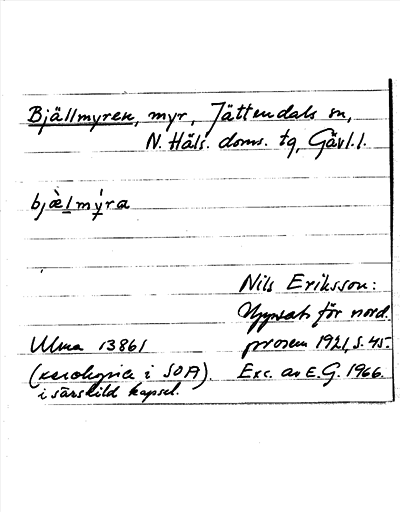 Bjällmyren, myr, Jättendals sn,
N. Häls. doms. tg, Gävl. l.
bjæ̀l̲mỵ́ra
Nils Eriksson:
Uppsats för nord.
Ulma 13861 prosem 1921, s. 45.
(xerokopia i SOA). Exc. av E.G. 1966.
i särskild kapsel.